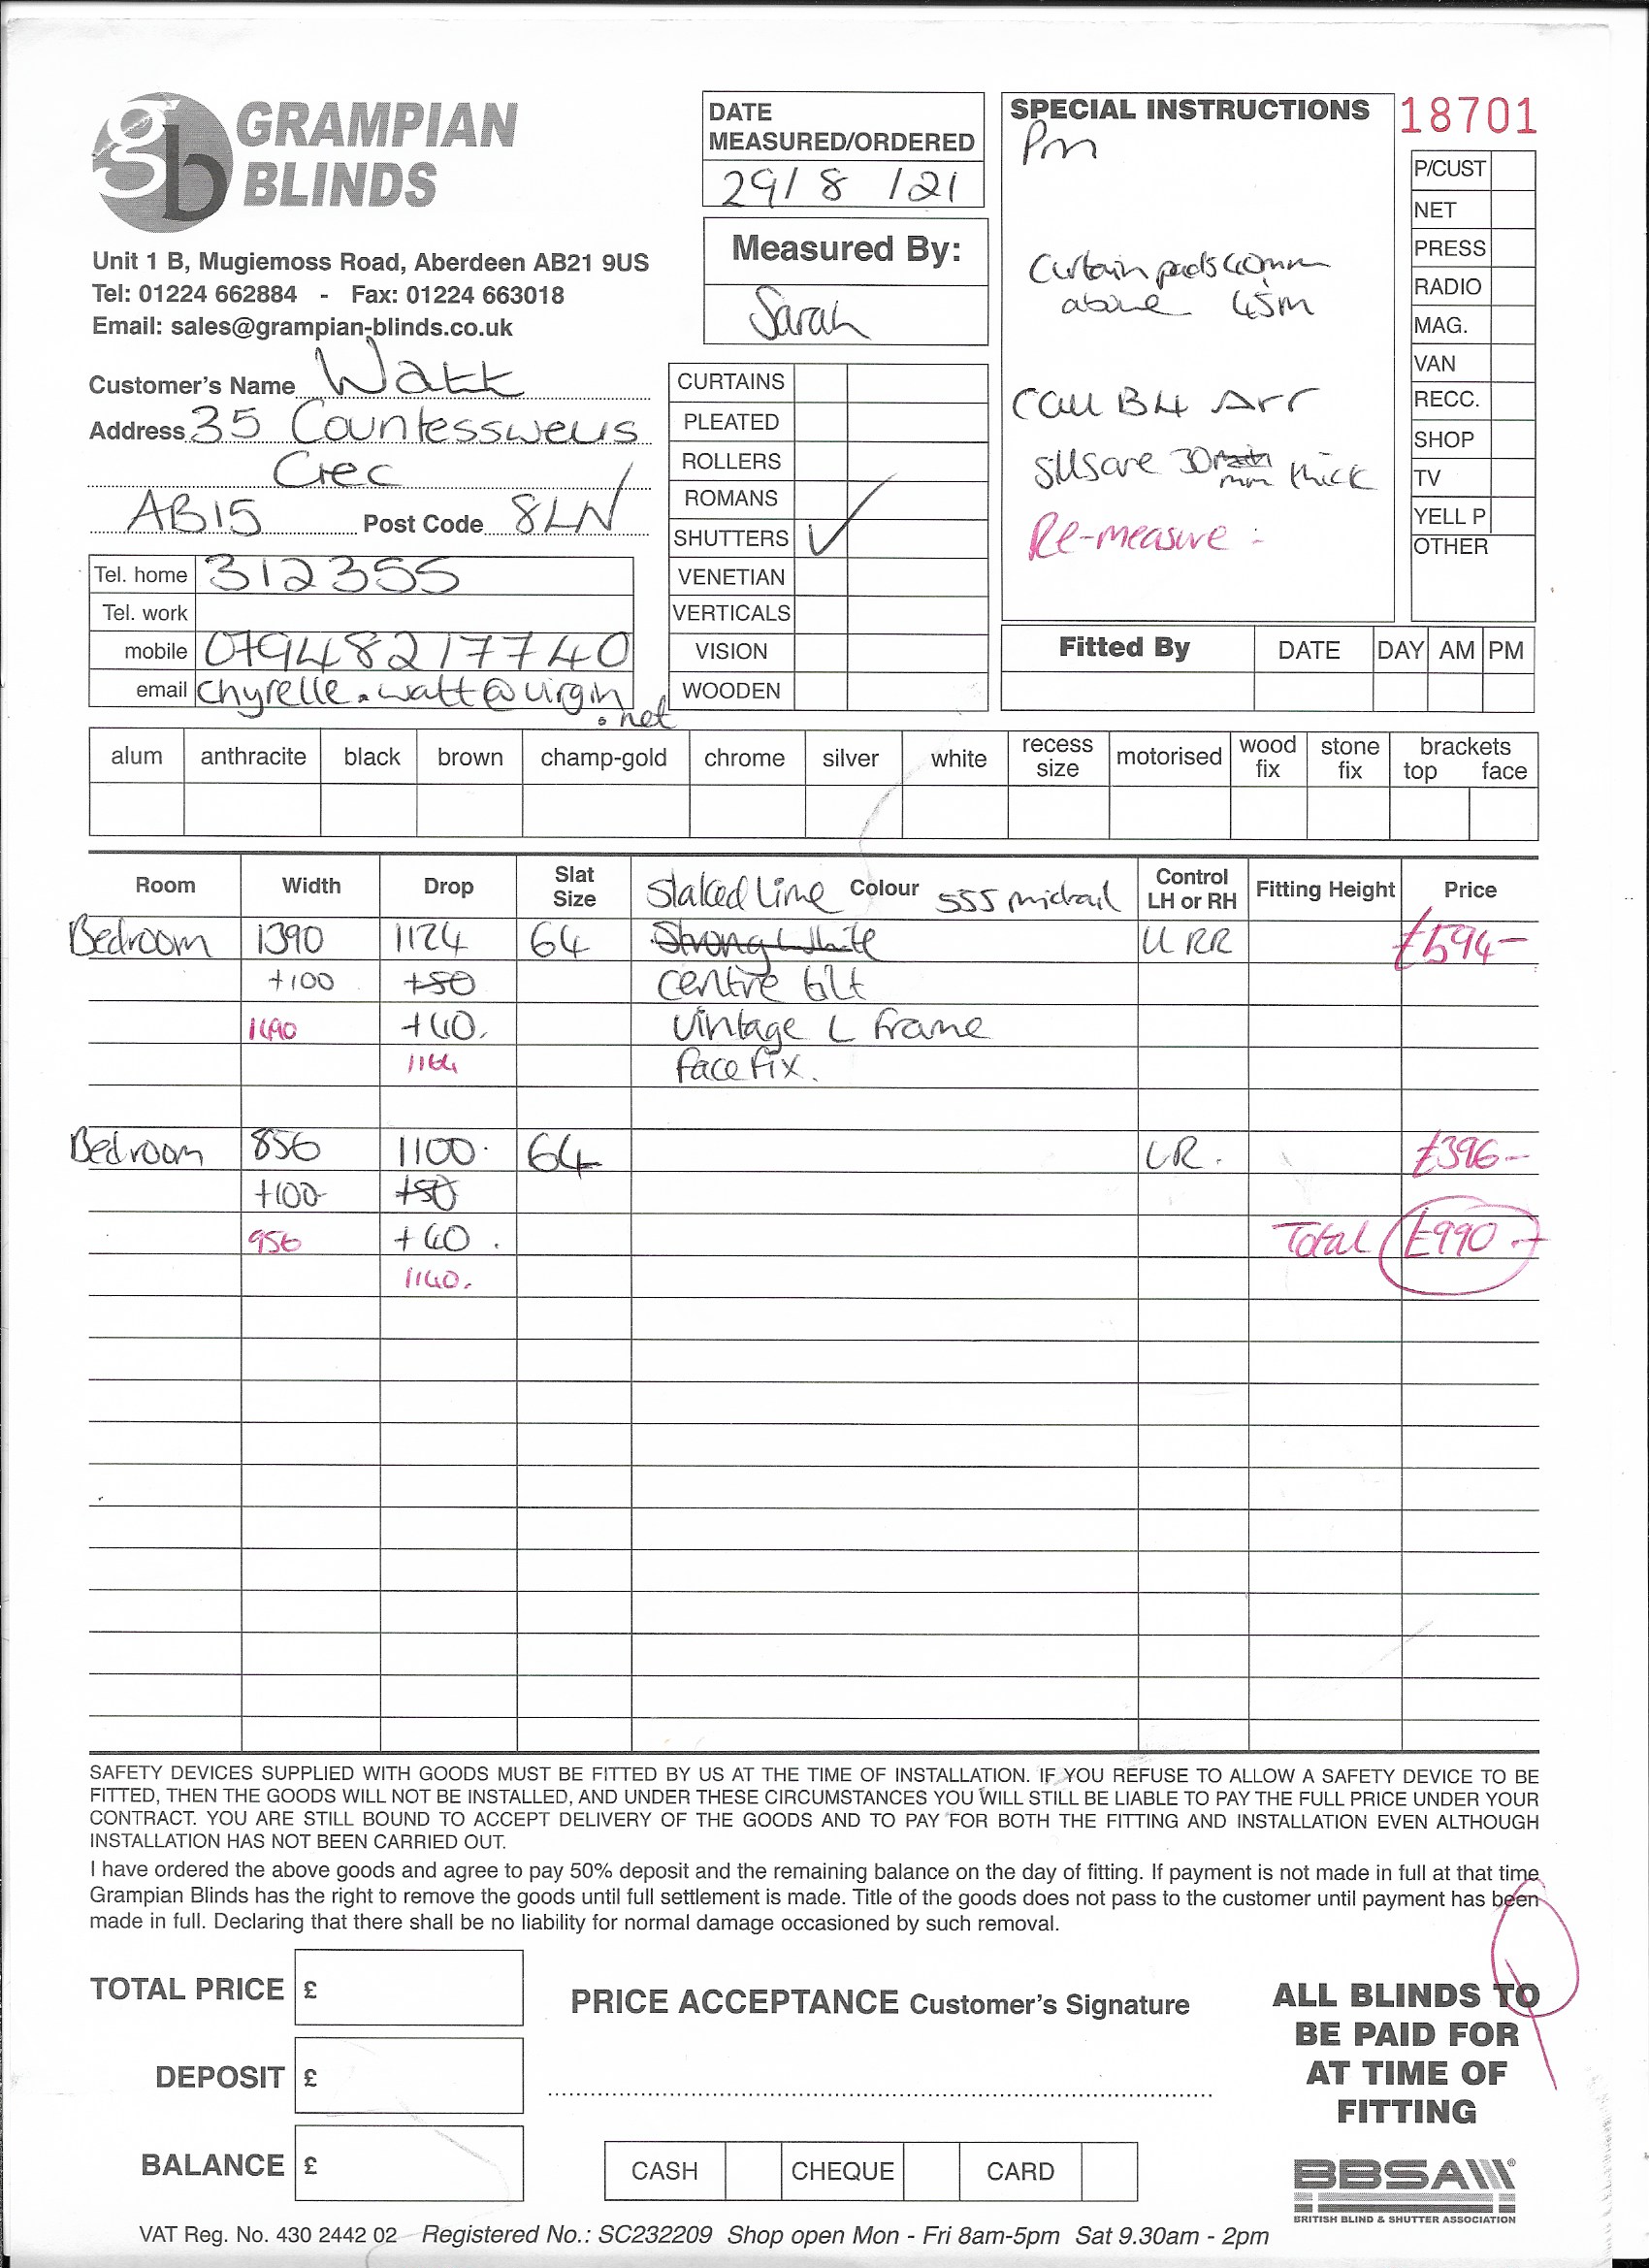 gb GRAMPIAN
BLINDS
Unit 1 B, Mugiemoss Road, Aberdeen AB21 9US
Tel: 01224 662884 - Fax: 01224 663018
Email: sales@grampian-blinds.co.uk
Customer's Name Watt
Address 35 Countesswells
Crec
AB15 Post Code 8LN
Tel. home 312355
Tel. work
mobile 07948217740
email chyrelle.watt@virgin
.net
DATE
MEASURED/ORDERED
29/8/21
Measured By:
Sarah
CURTAINS
PLEATED
ROLLERS
ROMANS
SHUTTERS ✓
VENETIAN
VERTICALS
VISION
WOODEN
SPECIAL INSTRUCTIONS
Pm
Curtain pads 40mm
above 45m
Call B4 Arr
sills are 30 mm thick
Re-measure -
18701
P/CUST
NET
PRESS
RADIO
MAG.
VAN
RECC.
SHOP
TV
YELL P
OTHER
Fitted By DATE DAY AM PM
alum anthracite black brown champ-gold chrome silver white recess size motorised wood fix stone fix brackets top face
Room Width Drop Slat Size Slaked Lime Colour SSS midrail Control LH or RH Fitting Height Price
Bedroom 1390 1124 64 Strong White LL RR £594-
+100 +50 centre tilt
1490 +40. Vintage L frame
1164 face fix.
Bedroom 856 1100. 64 LR. £396-
+100 +50
956 +40. Total £990-
1140.
SAFETY DEVICES SUPPLIED WITH GOODS MUST BE FITTED BY US AT THE TIME OF INSTALLATION. IF YOU REFUSE TO ALLOW A SAFETY DEVICE TO BE
FITTED, THEN THE GOODS WILL NOT BE INSTALLED, AND UNDER THESE CIRCUMSTANCES YOU WILL STILL BE LIABLE TO PAY THE FULL PRICE UNDER YOUR
CONTRACT. YOU ARE STILL BOUND TO ACCEPT DELIVERY OF THE GOODS AND TO PAY FOR BOTH THE FITTING AND INSTALLATION EVEN ALTHOUGH
INSTALLATION HAS NOT BEEN CARRIED OUT.
I have ordered the above goods and agree to pay 50% deposit and the remaining balance on the day of fitting. If payment is not made in full at that time
Grampian Blinds has the right to remove the goods until full settlement is made. Title of the goods does not pass to the customer until payment has been
made in full. Declaring that there shall be no liability for normal damage occasioned by such removal.
TOTAL PRICE £
DEPOSIT £
BALANCE £
PRICE ACCEPTANCE Customer's Signature
CASH CHEQUE CARD
ALL BLINDS TO
BE PAID FOR
AT TIME OF
FITTING
BBSA
BRITISH BLIND & SHUTTER ASSOCIATION
VAT Reg. No. 430 2442 02 Registered No.: SC232209 Shop open Mon - Fri 8am-5pm Sat 9.30am - 2pm